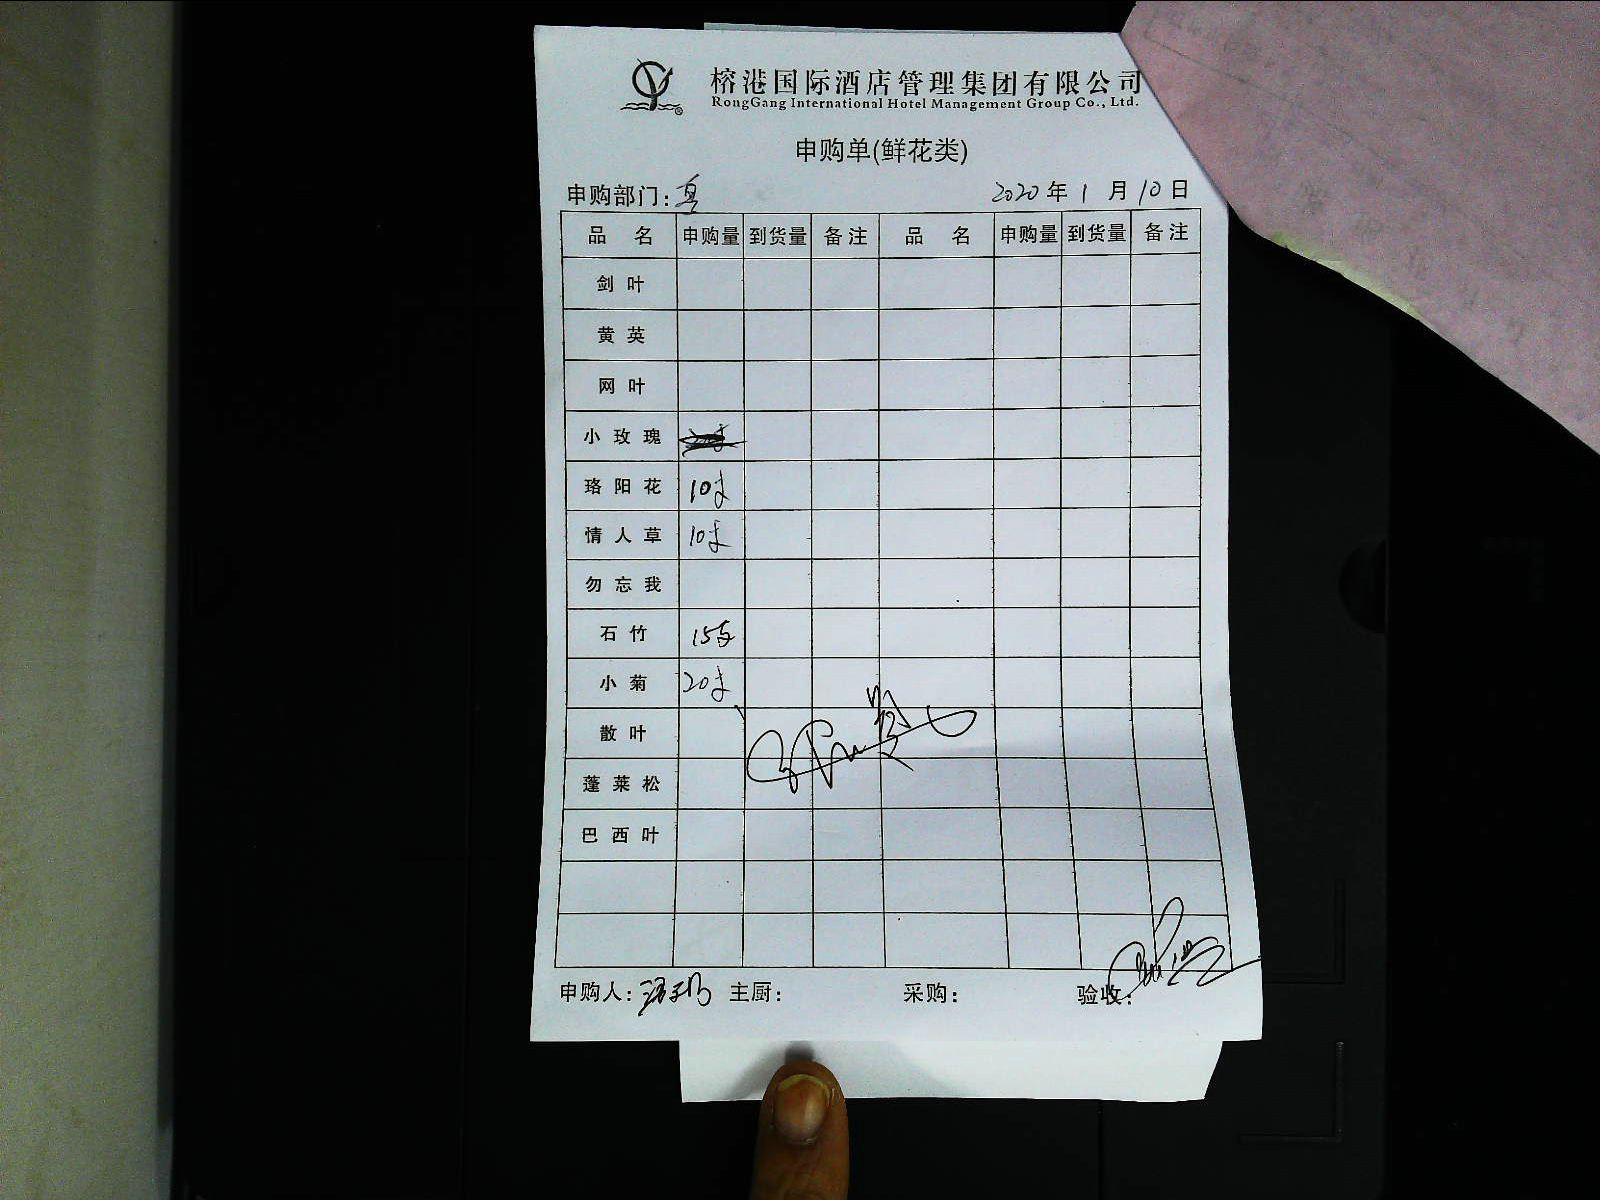 榕港国际酒店管理集团有限公司
RongGang International Hotel Management Group Co., Ltd.
申购单(鲜花类)
申购部门: 2020年1月10日
品名 申购量 到货量 备注 品名 申购量 到货量 备注
剑叶
黄英
网叶
小玫瑰
珞阳花 10支
情人草 10支
勿忘我
石竹 15支
小菊 20支
散叶
蓬莱松
巴西叶
申购人: 主厨: 采购: 验收: